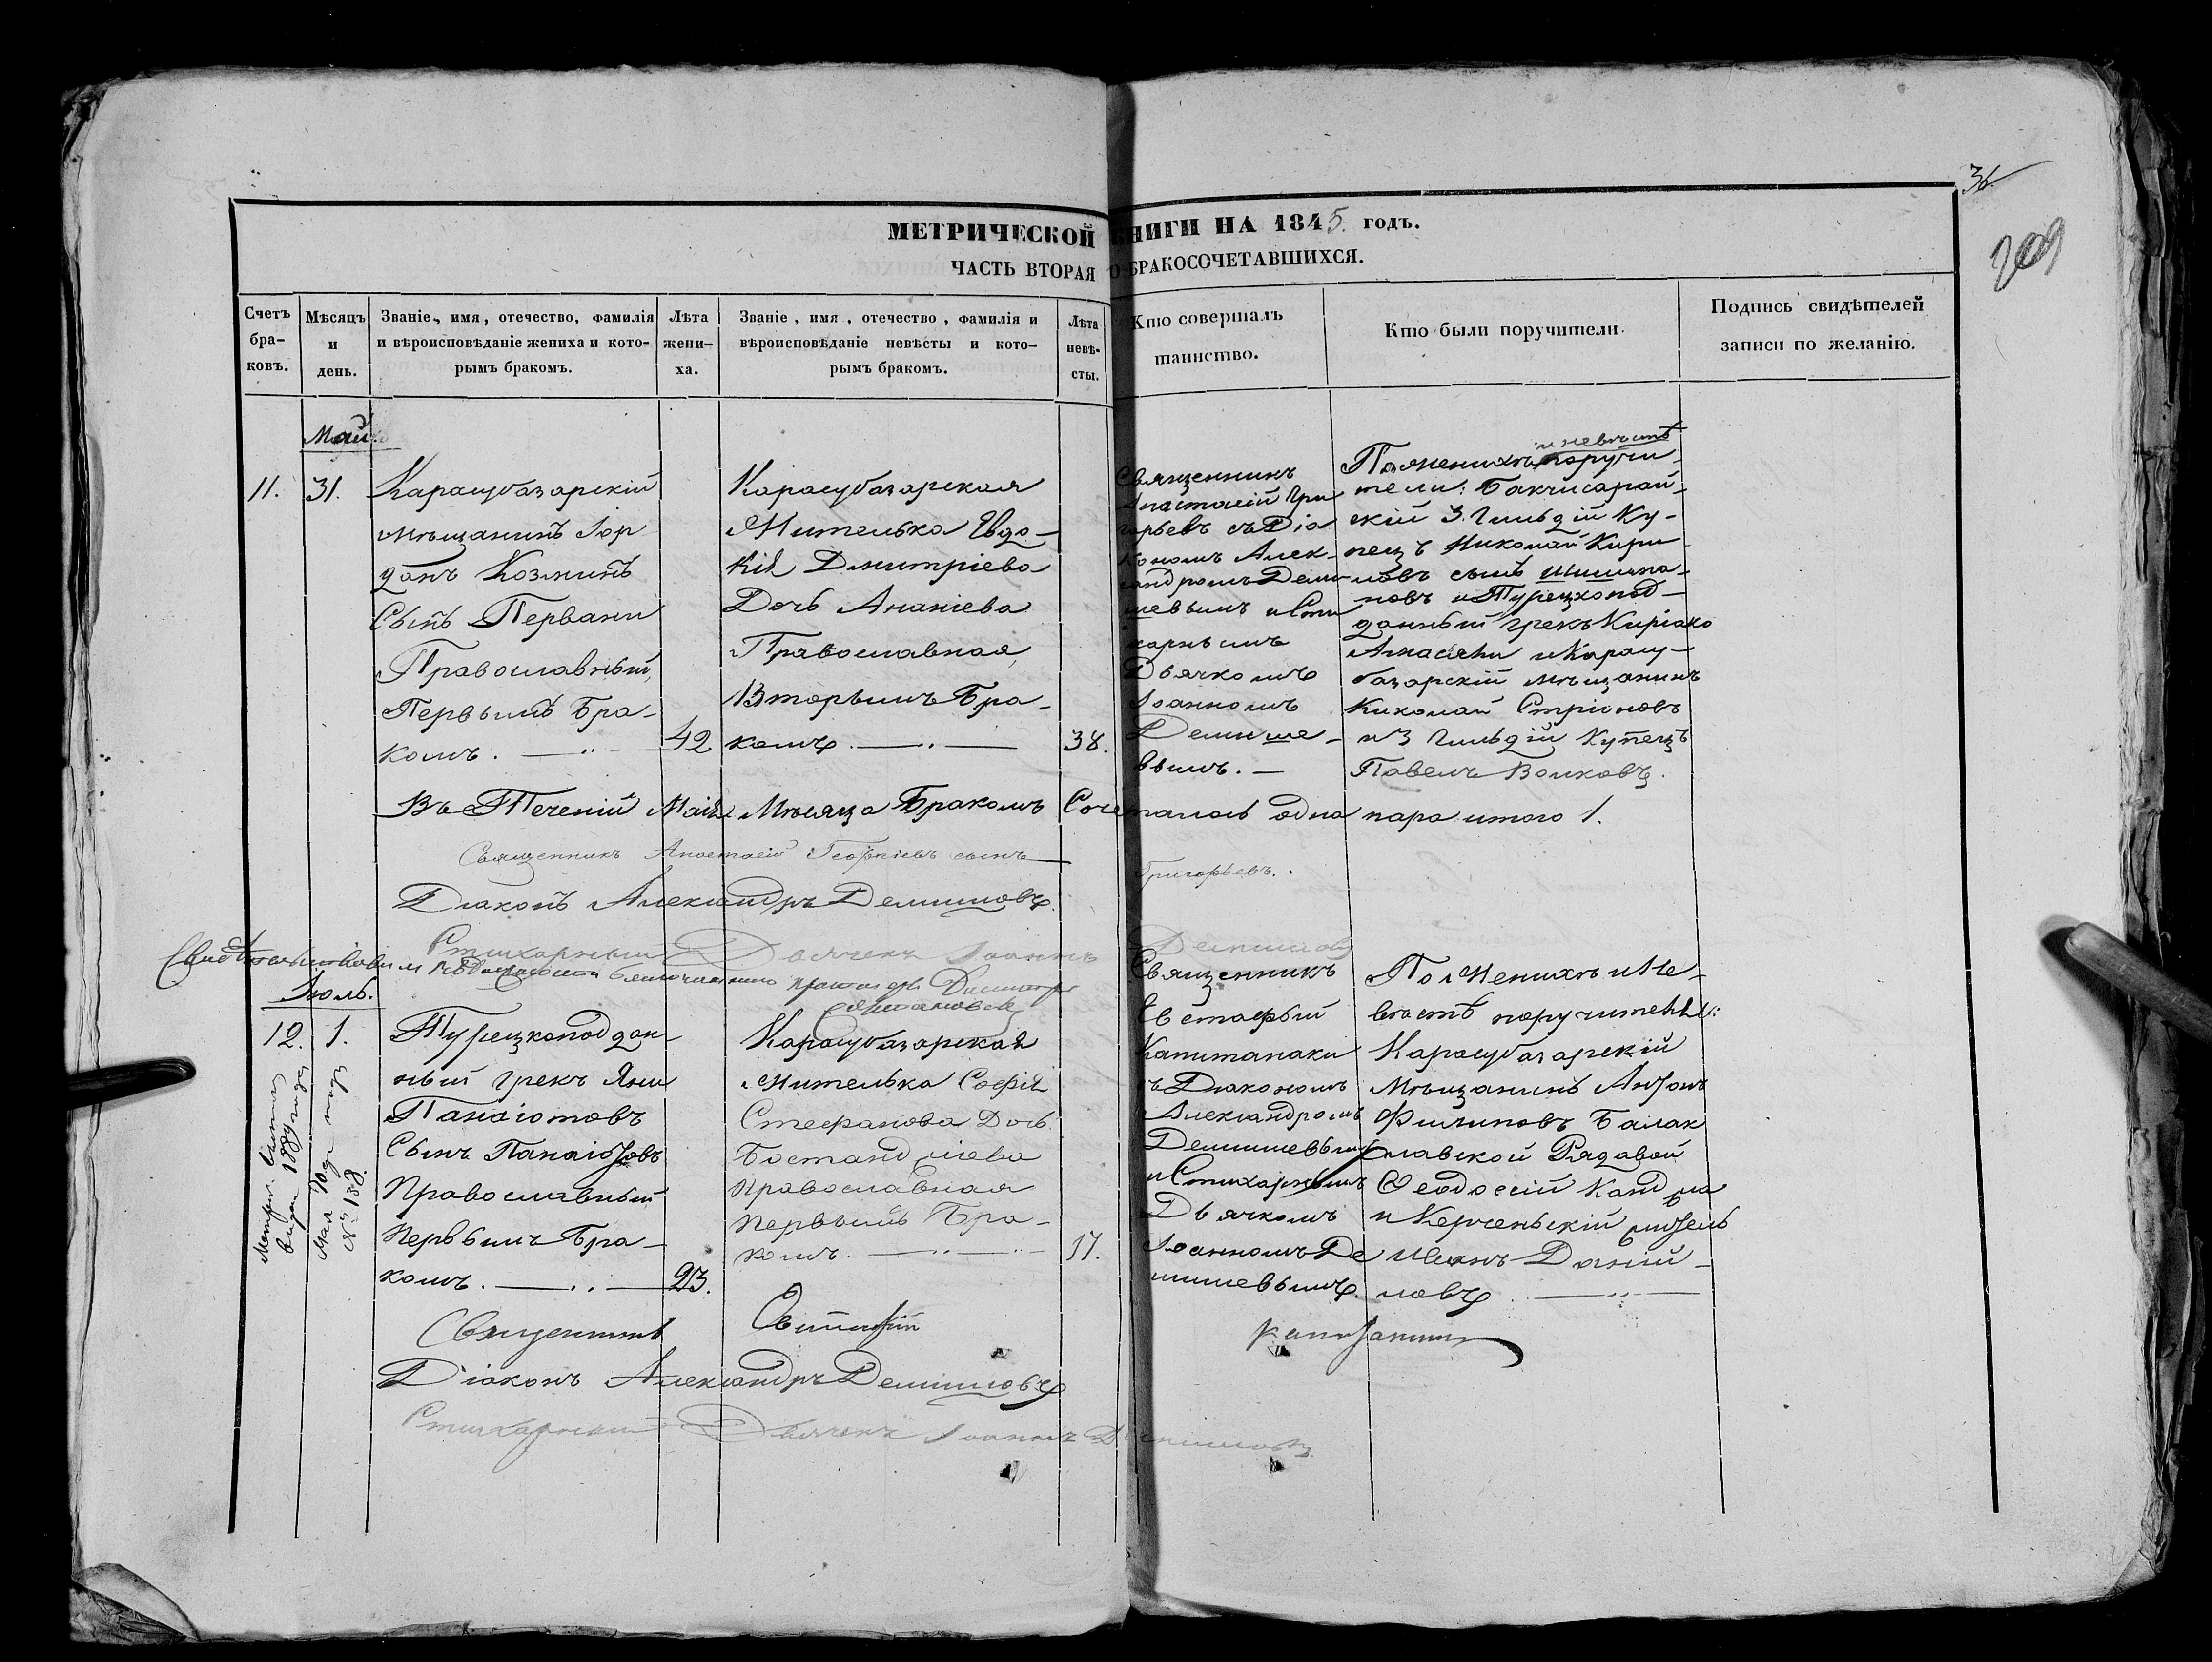 36
209
МЕТРИЧЕСКОЙ КНИГИ НА 1845. годъ.
ЧАСТЬ ВТОРАЯ О БРАКОСОЧЕТАВШИХСЯ.
Счетъ бра-
ковъ.
Мѣсяцъ
и
день.
Званіе, имя, отечество, фамилія
и вѣроисповѣданіе жениха и кото-
рымъ бракомъ.
Лѣта
жени-
ха.
Званіе, имя, отечество, фамилія и
вѣроисповѣданіе невѣсты и кото-
рымъ бракомъ.
Лѣта
невѣ-
сты.
Кто совершалъ
таинство.
Кто были поручители.
Подпись свидѣтелей
записи по желанію.
Май
11.
31.
Карасубазарскій
мѣщанинъ Іор
данъ Козминъ
Сынъ Первани
Православный,
Первымъ Бра-
комъ.
42
Карасубазарская
Жителька Евдо-
кія Дмитріева
Дочь Ананіева
Православная,
Вторымъ Бра-
комъ.
38.
Священникъ
Анастасій Гри
горьевъ съ Діа
кономъ Алек-
сандромъ Деми
шевымъ и Сти
харнымъ
Дьячкомъ
Іоанномъ
Демише-
вымъ.
и невѣстѣ
По женихѣ поручи-
тели: Бакчисарай-
скій 3. Гильдій Ку-
пецъ Николай Кири
ловъ сынъ Шишма-
новъ и Турецкопод-
данный грекъ Киріако
Атасяни и Карасу-
базарскій мѣщанинъ
Николай Стріоновъ
и 3 Гильдій Купецъ
Павелъ Волковъ.
Въ Теченій Маія Мѣсяца Бракомъ Сочеталось одна пара итого 1.
Священникъ Анастасій Георгіевъ сынъ Григорьевъ.
Діаконъ Александръ Демишовъ.
Стихарный Дьячекъ Іоаннъ Демишовъ
Іюль.
12.
1.
Турецкоподдан-
ный грекъ Яни
Панаіотовъ
Сынъ Панаіотовъ
Православный
Первымъ Бра-
комъ.
23.
Карасубазарская
Жителька Софія
Стефанова Дочь
Православная
Первымъ Бра-
комъ.
17.
Священникъ
Евстафый
Капитанаки
съ Діакономъ
Александромъ
Демишевымъ
и Стихарнымъ
Дьячкомъ
Іоанномъ Де
мишевымъ.
По Женихѣ и Не-
вѣстѣ поручители:
Карасубазарскій
Мѣщанинъ Антонъ
Филиповъ Балак
лавской Рядовой
Ѳеодосій
и Керченьскій житель
Иванъ Даній-
ловъ
1889 года
Мая 10 дня
№ 138.
Священникъ Евстафій Капитанаки
Діаконъ Александръ Демишовъ
Стихарный Дьячекъ Іоаннъ Демишовъ